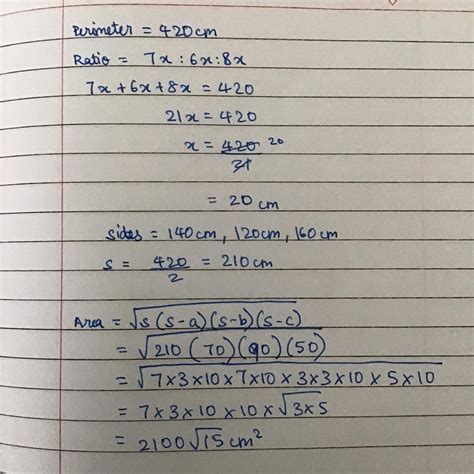 Perimeter = 420cm
Ratio = 7x : 6x : 8x
7x + 6x + 8x = 420
21x = 420
x = 420 20
21
= 20 cm
sides = 140cm, 120cm, 160cm
s = 420/2 = 210cm
Area = √s(s-a)(s-b)(s-c)
= √210(70)(90)(50)
= √7×3×10×7×10×3×3×10×5×10
= 7×3×10×10×√3×5
= 2100√15 cm²